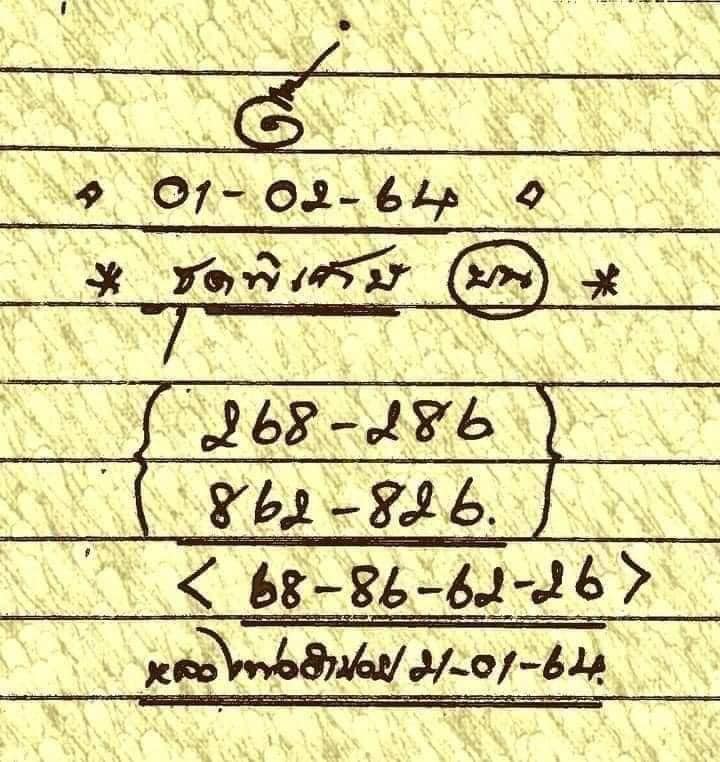 01-02-64
* ชุดพิเศษ บน *
268-286
862-826.
< 68-86-62-26 >
หลวงพ่อ 21-01-64.